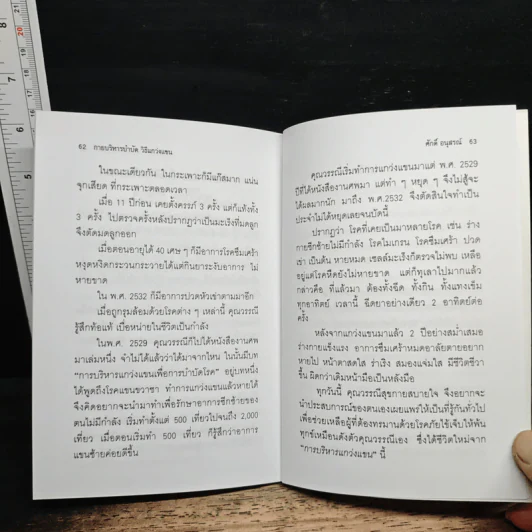 62 กายบริหารบำบัด วิธีแกว่งแขน
ในขณะเดียวกัน ในกระเพาะก็มีแก๊สมาก แน่น
จุกเสียด ที่กระเพาะตลอดเวลา
เมื่อ 11 ปีก่อน เคยตั้งครรภ์ 3 ครั้ง แต่ก็แท้งทั้ง
3 ครั้ง ไปตรวจครั้งหลังปรากฏว่าเป็นมะเร็งที่มดลูก
จึงตัดมดลูกออก
เมื่อตอนอายุได้ 40 เศษ ๆ ก็มีอาการโรคซึมเศร้า
หงุดหงิดกระวนกระวายได้แต่กินยาระงับอาการ ไม่
หายขาด
ใน พ.ศ. 2532 ก็มีอาการปวดหัวเข่าตามมาอีก
เมื่อถูกรุมล้อมด้วยโรคต่าง ๆ เหล่านี้ คุณวรรณี
รู้สึกท้อแท้ เบื่อหน่ายในชีวิตเป็นกำลัง
ในพ.ศ. 2529 คุณวรรณีก็ไปได้หนังสืองานศพ
มาเล่มหนึ่ง จำไม่ได้แล้วว่าได้มาจากไหน ในนั้นมีบท
"การบริหารแกว่งแขนเพื่อการบำบัดโรค" อยู่บทหนึ่ง
ได้พูดถึงโรคแขนขวาชา ทำการแกว่งแขนแล้วหายได้
จึงคิดอยากจะนำมาทำเพื่อรักษาอาการซีกซ้ายของ
ตนไม่มีกำลัง เริ่มทำตั้งแต่ 500 เที่ยวไปจนถึง 2,000
เที่ยว เมื่อตอนเริ่มทำ 500 เที่ยว ก็รู้สึกว่าอาการ
แขนซ้ายค่อยดีขึ้น
ศักดิ์ อนุสรณ์ 63
คุณวรรณีเริ่มทำการแกว่งแขนมาแต่ พ.ศ. 2529
ปีที่ได้หนังสืองานศพมา แต่ทำ ๆ หยุด ๆ จึงไม่สู้จะ
ได้ผลมากนัก มาถึง พ.ศ.2532 จึงตัดสินใจทำเป็น
ประจำไม่ได้หยุดเลยจนบัดนี้
ปรากฏว่า โรคที่เคยเป็นมาหลายโรค เช่น ร่าง
กายซีกซ้ายไม่มีกำลัง โรคไมเกรน โรคซึมเศร้า ปวด
เข่า เป็นต้น หายหมด เซลล์มะเร็งก็ตรวจไม่พบ เหลือ
อยู่แต่โรคหืดยังไม่หายขาด แต่ก็ทุเลาไปมากแล้ว
กล่าวคือ ที่แล้วมา ต้องทั้งฉีด ทั้งกิน ทั้งแทงเข็ม
ทุกอาทิตย์ เวลานี้ ฉีดยาอย่างเดียว 2 อาทิตย์ต่อ
ครั้ง
หลังจากแกว่งแขนมาแล้ว 2 ปีอย่างสม่ำเสมอ
ร่างกายแข็งแรง อาการซึมเศร้าหมดอาลัยตายอยาก
หายไป หน้าตาสดใส ร่าเริง สมองแจ่มใส มีชีวิตชีวา
ขึ้น ผิดกว่าเดิมหน้ามือเป็นหลังมือ
ทุกวันนี้ คุณวรรณีสุขกายสบายใจ จึงอยากจะ
นำประสบการณ์ของตนเองเผยแพร่ให้เป็นที่รู้กันทั่วไป
เพื่อช่วยเหลือผู้ที่ต้องทรมานด้วยโรคภัยไข้เจ็บให้พ้น
ทุกข์เหมือนดังตัวคุณวรรณีเอง ซึ่งได้ชีวิตใหม่จาก
"การบริหารแกว่งแขน" นี้
5
6
7
8
18
19
20
21